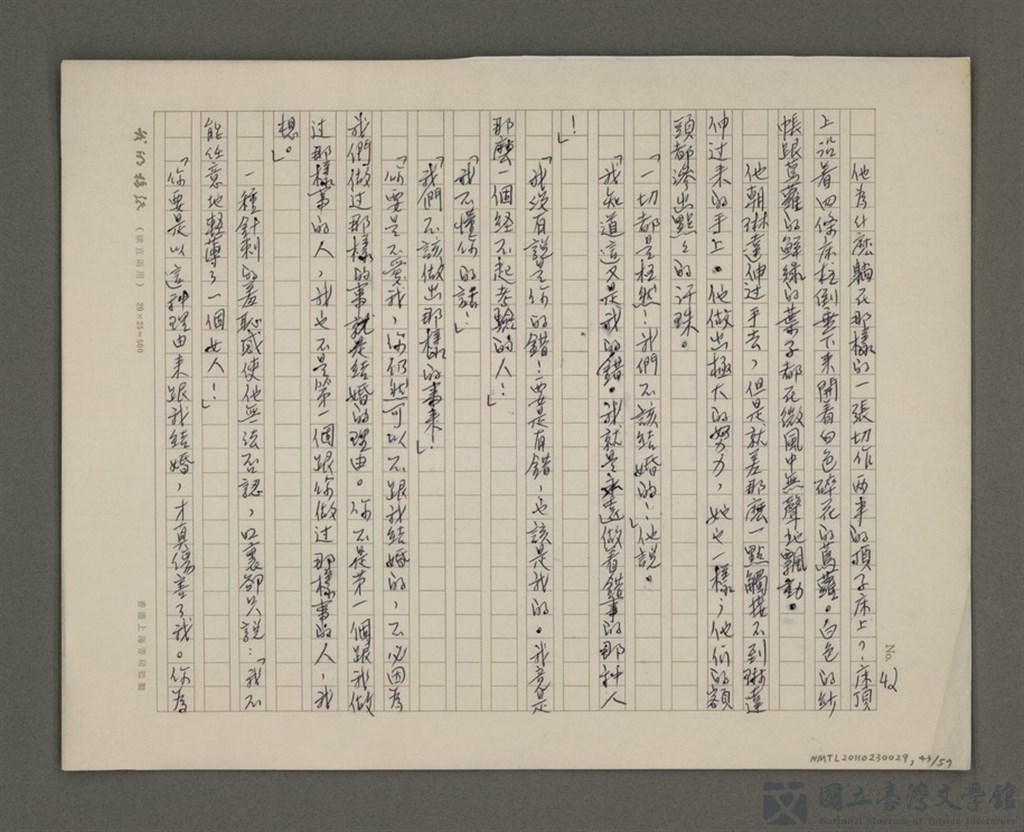 No. 42
他為什麽躺在那樣的一張切作兩半的頂子床上?床頂
上沿着四條床柱倒垂下來開着白色碎花的蔦蘿。白色的紗
帳跟蔦蘿的鮮綠的葉子都在微風中無聲地飄動。
他朝琳達伸过手去,但是就差那麽一點觸摸不到琳達
伸过来的手上。他做出極大的努力,她也一樣;他們的額
頭都滲出點點的汗珠。
「一切都是枉然!我們不該結婚的!」他說。
「我知道這又是我的錯。我就是永遠做着錯事的那種人
!」
「我没有説是你的錯!要是有錯,也該是我的。我竟是
那麽一個経不起考驗的人!」
「我不懂你的話!」
「我們不該做出那樣的事来!」
「你要是不愛我,你仍然可以不跟我結婚的,不必因為
我們做过那樣的事就是結婚的理由。你不是第一個跟我做
过那樣事的人,我也不是第一個跟你做过那樣事的人,我
想」。
一種針刺的羞恥感使他無法否認,口裏卻只說:「我不
能任意地輕薄了一個女人!」
「你要是以這種理由来跟我結婚,才真傷害了我。你為
我的稿紙 (橫直兩用) 20×25=500
香港上海書局監製
NMTL20110230029, 43/59
國立臺灣文學館
National Museum of Taiwan Literature